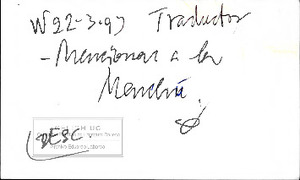 W 22-3-93 Traductor
- Mencionar a la
Menchú.
DESC.